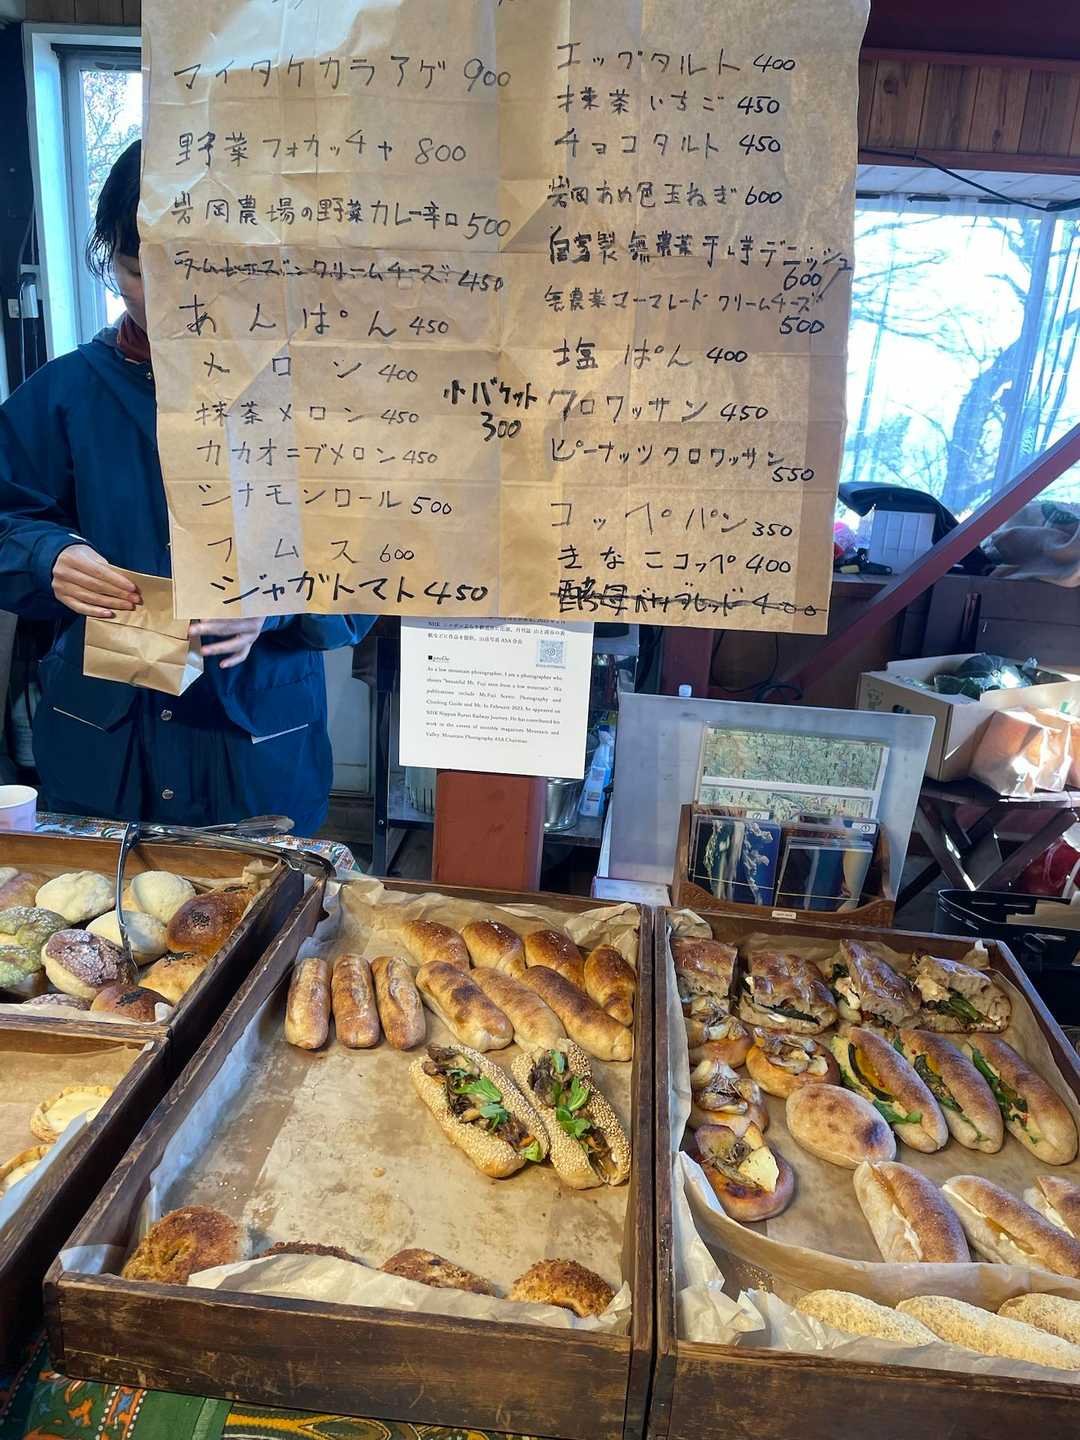 マイタケカラアゲ 900
野菜フォカッチャ 800
岩岡農場の野菜カレー辛口 500
クリームチーズ 450
あんぱん 450
メロン 400
抹茶メロン 450
カカオニブメロン 450
シナモンロール 500
フムス 600
ジャガトマト 450
小バケット
300
エッグタルト 400
抹茶いちご 450
チョコタルト 450
岩岡あめ色玉ねぎ 600
自家製無農薬干し芋デニッシュ
600
無農薬マーマレードクリームチーズ
500
塩ぱん 400
クロワッサン 450
ピーナッツクロワッサン
550
コッペパン 350
きなこコッペ 400
酵母 400
■profile
As a low mountain photographer, I am a photographer who
shoots "beautiful Mt. Fuji seen from a low mountain". His
publications include Mt.Fuji Scenic Photography and
Climbing Guide and Mt. In February 2023, he appeared on
NHK Nippon Buruti Railway Journey. He has contributed his
work to the covers of monthly magazines Mountain and
Valley. Mountain Photography ASA Chairman